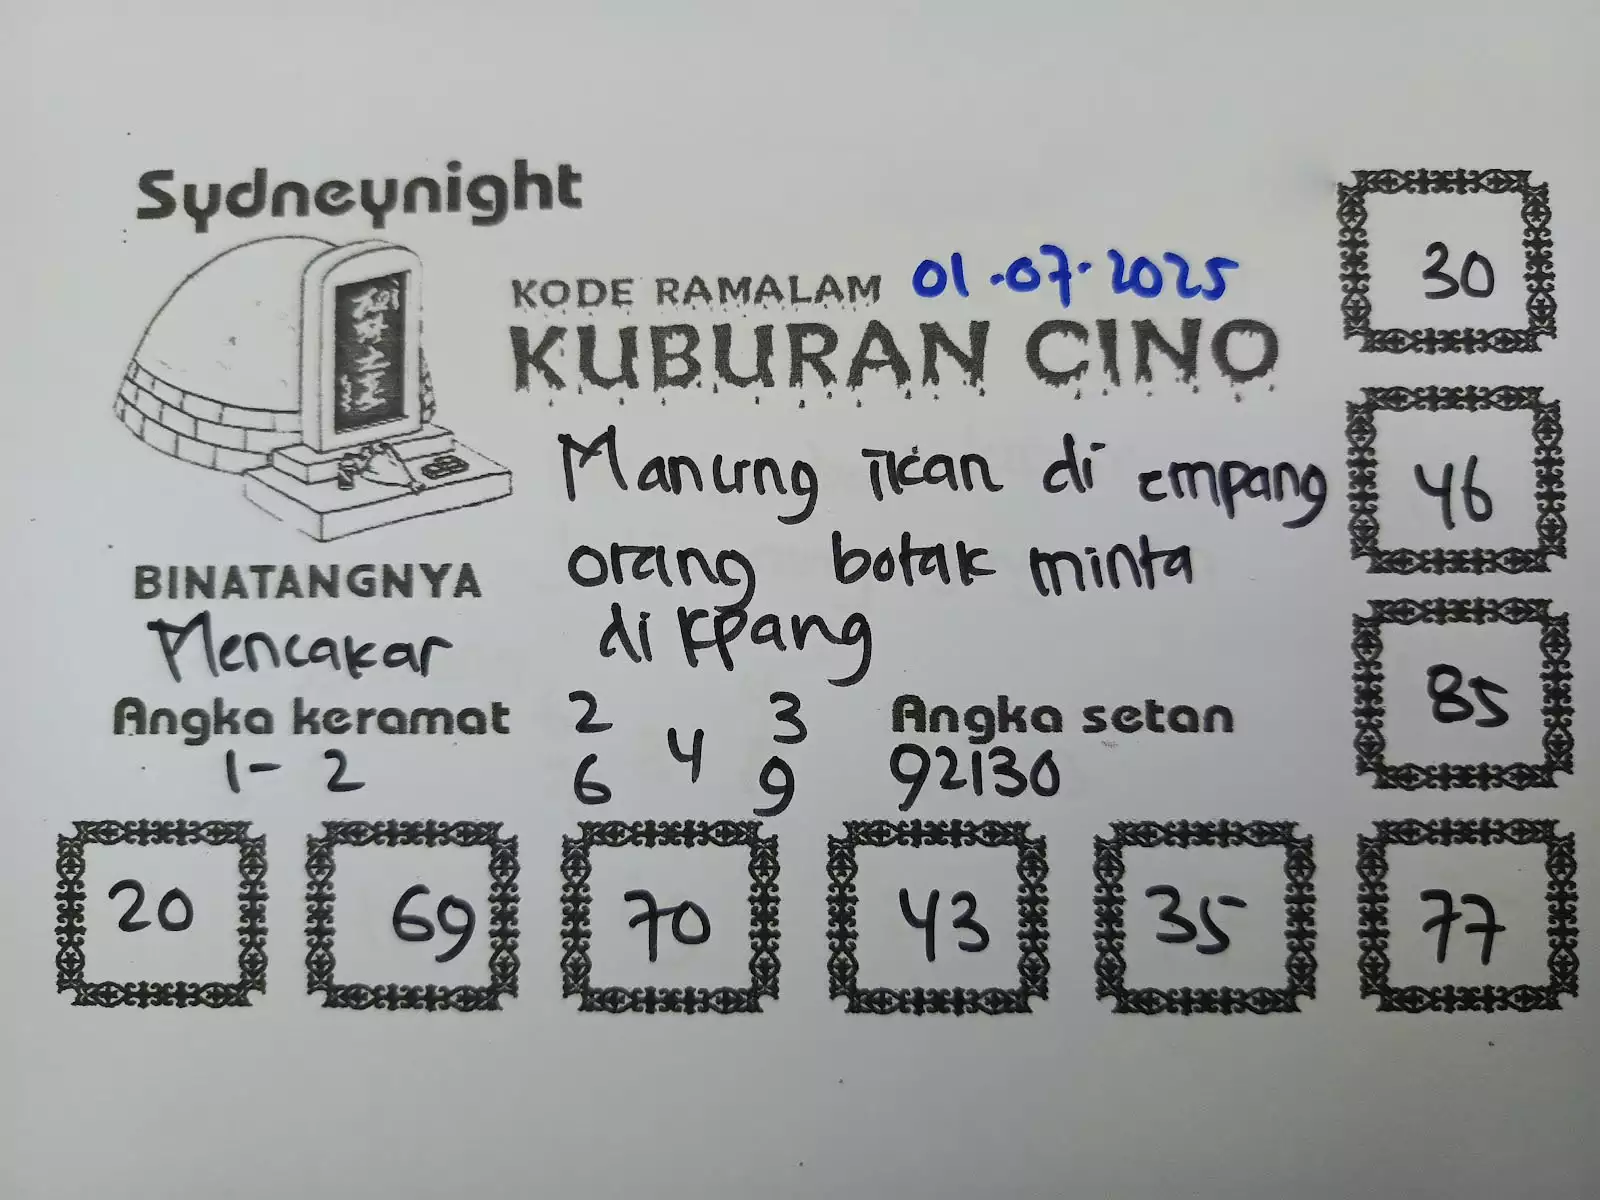 Sydneynight
KODE RAMALAM 01-07-2025
KUBURAN CINO
Manung ikan di empang
orang botak minta
di kpang
BINATANGNYA
Mencakar
Angka keramat
1- 2
2 3
4
6 9
Angka setan
92130
30
46
85
20 69 70 43 35 77